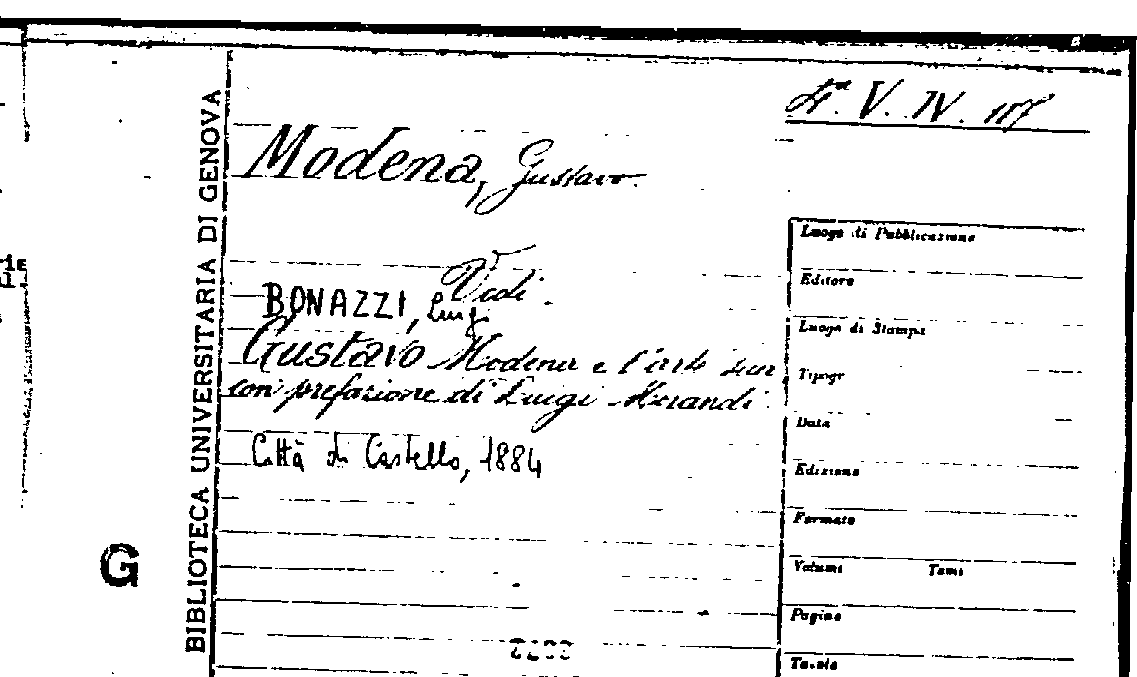 V. IV.
Modena, Gustavo.
Vedi
BONAZZI, Luigi
Gustavo Modena e l'arte sua
con prefazione di Luigi Morandi
Città di Castello, 1884
BIBLIOTECA UNIVERSITARIA DI GENOVA
G
Luogo di Pubblicazione
Editore
Luogo di Stampa
Tipogr
Data
Edizione
Formato
Volumi Tomi
Pagine
Tavole